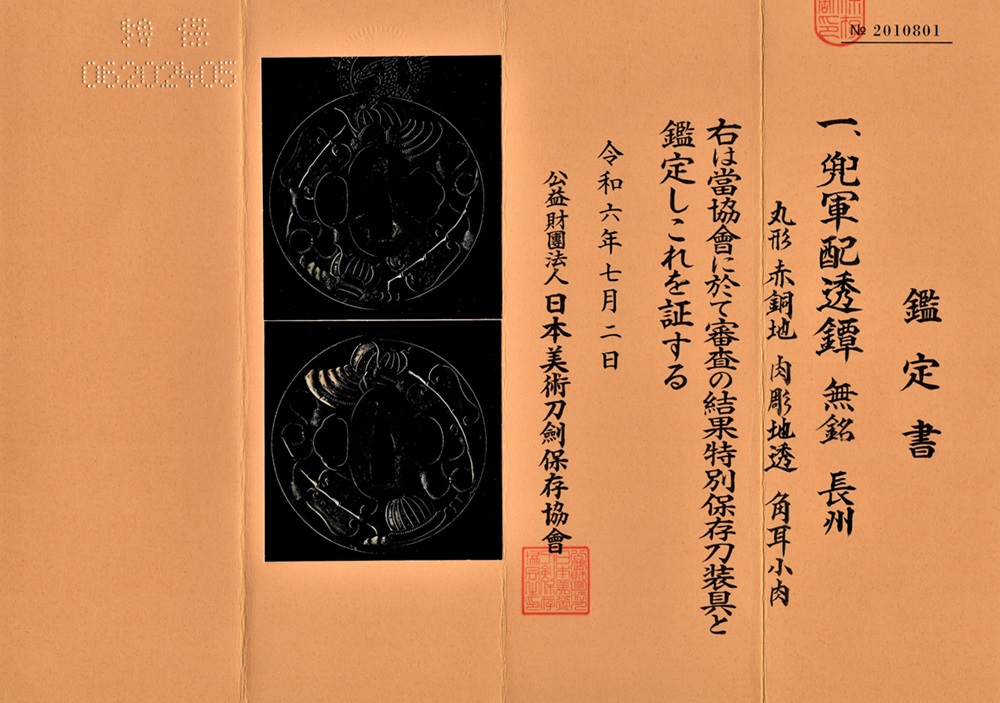 № 2010801
鑑定書
一、兜軍配透鐔 無銘 長州
丸形 赤銅地 肉彫地透 角耳小肉
右は當協會に於て審査の結果特別保存刀装具と
鑑定しこれを証する
令和六年七月二日
公益財團法人 日本美術刀劍保存協會
特保
06202405